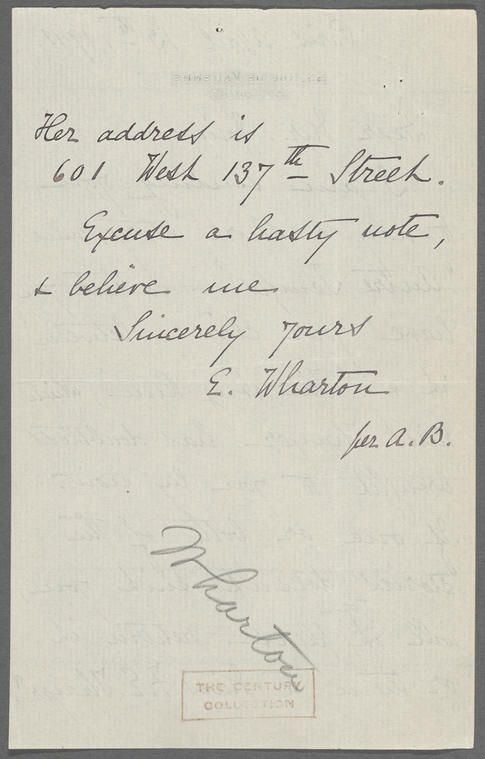 Her address is
601 West 137th Street.
Excuse a hasty note,
& believe me
Sincerely yours
E. Wharton
per A. B.
Wharton
THE CENTURY
COLLECTION